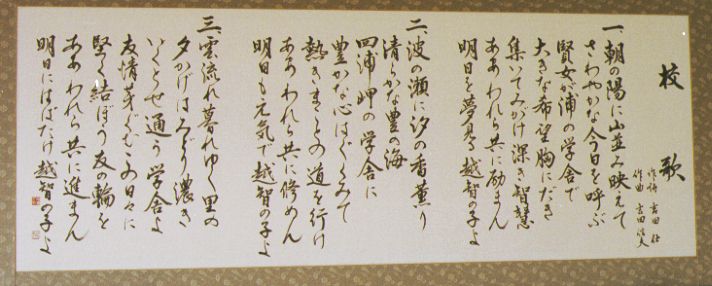 校歌
作詩 吉田
作曲 吉田
一、朝の陽に山並み映えて
さわやかな今日を呼ぶ
賢女が浦の学舎で
大きな希望胸にだき
集いてみがけ深き智慧
ああわれら共に励まん
明日を夢見る越智の子よ
二、波の瀬に汐の香薫り
清らかな豊の海
四浦岬の学舎に
豊かな心はぐくみて
熱きまことの道を行け
ああわれら共に修めん
明日も元気で越智の子よ
三、雲流れ暮れゆく里の
夕かげはみどり濃き
いくとせ通う学舎よ
友情芽ぐむこの日々に
堅く結ぼう友の輪を
ああわれら共に進まん
明日にはばたけ越智の子よ